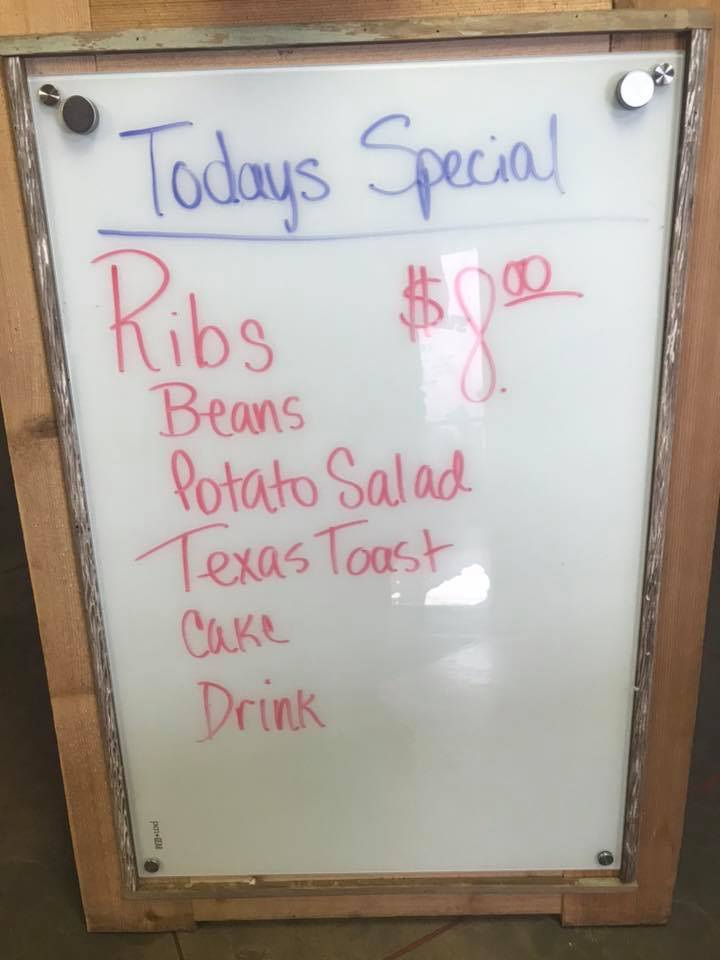 Todays Special
Ribs $8.00
Beans
Potato Salad
Texas Toast
Cake
Drink